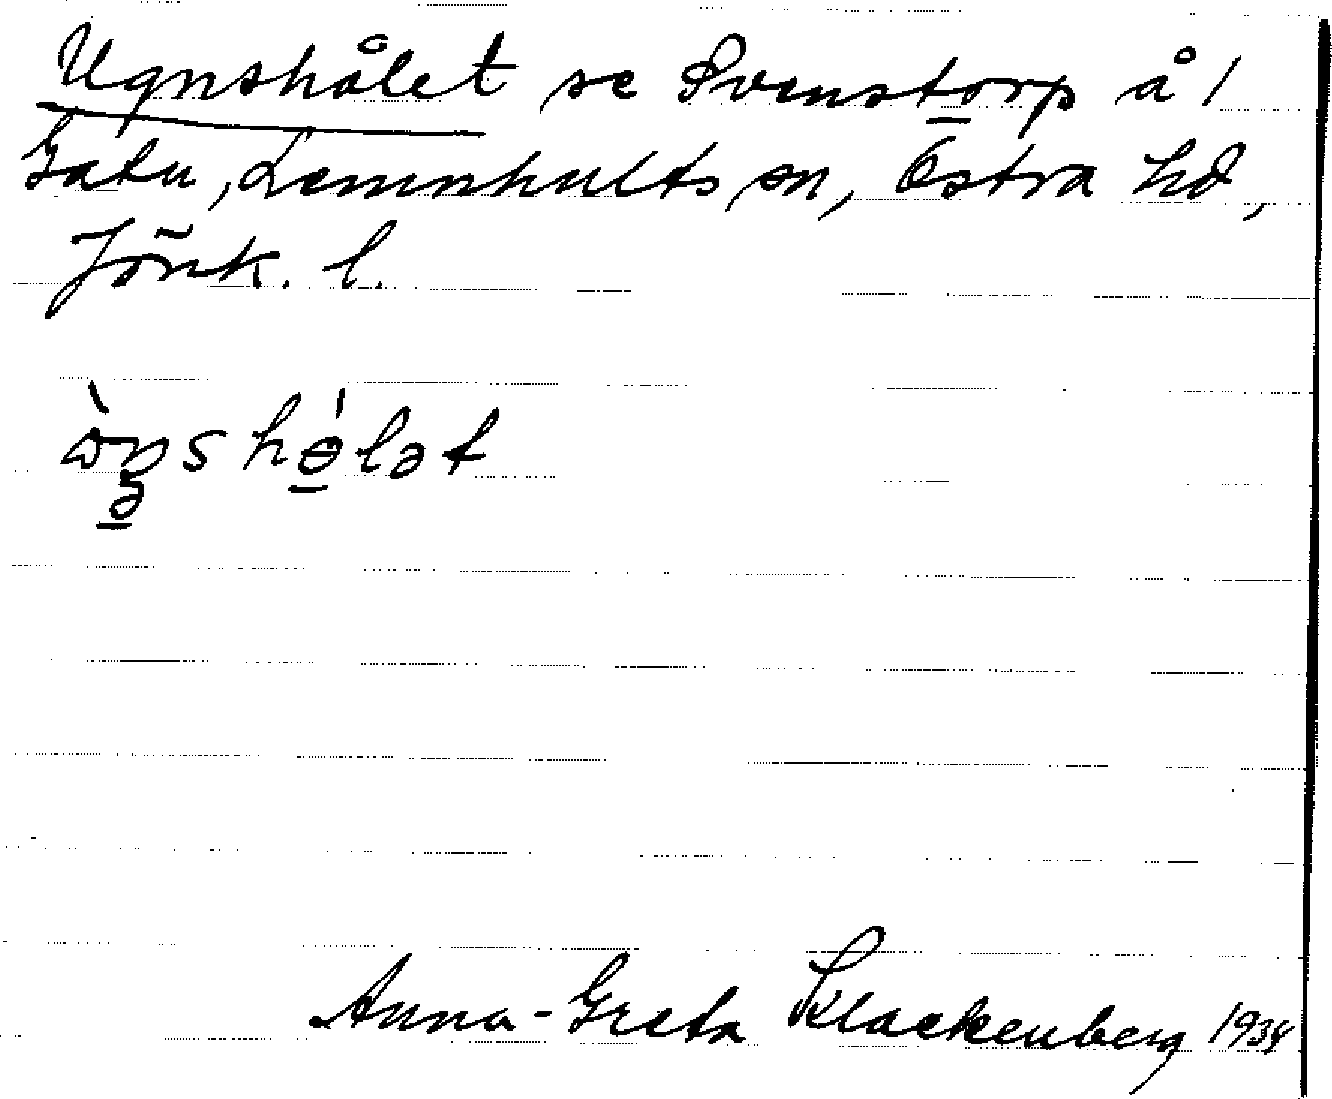 Ugnshålet se Svenstorp å 1
Gatu, Lemnhults sn, Östra hd,
Jönk. l.
Anna-Greta Klackenberg 1934